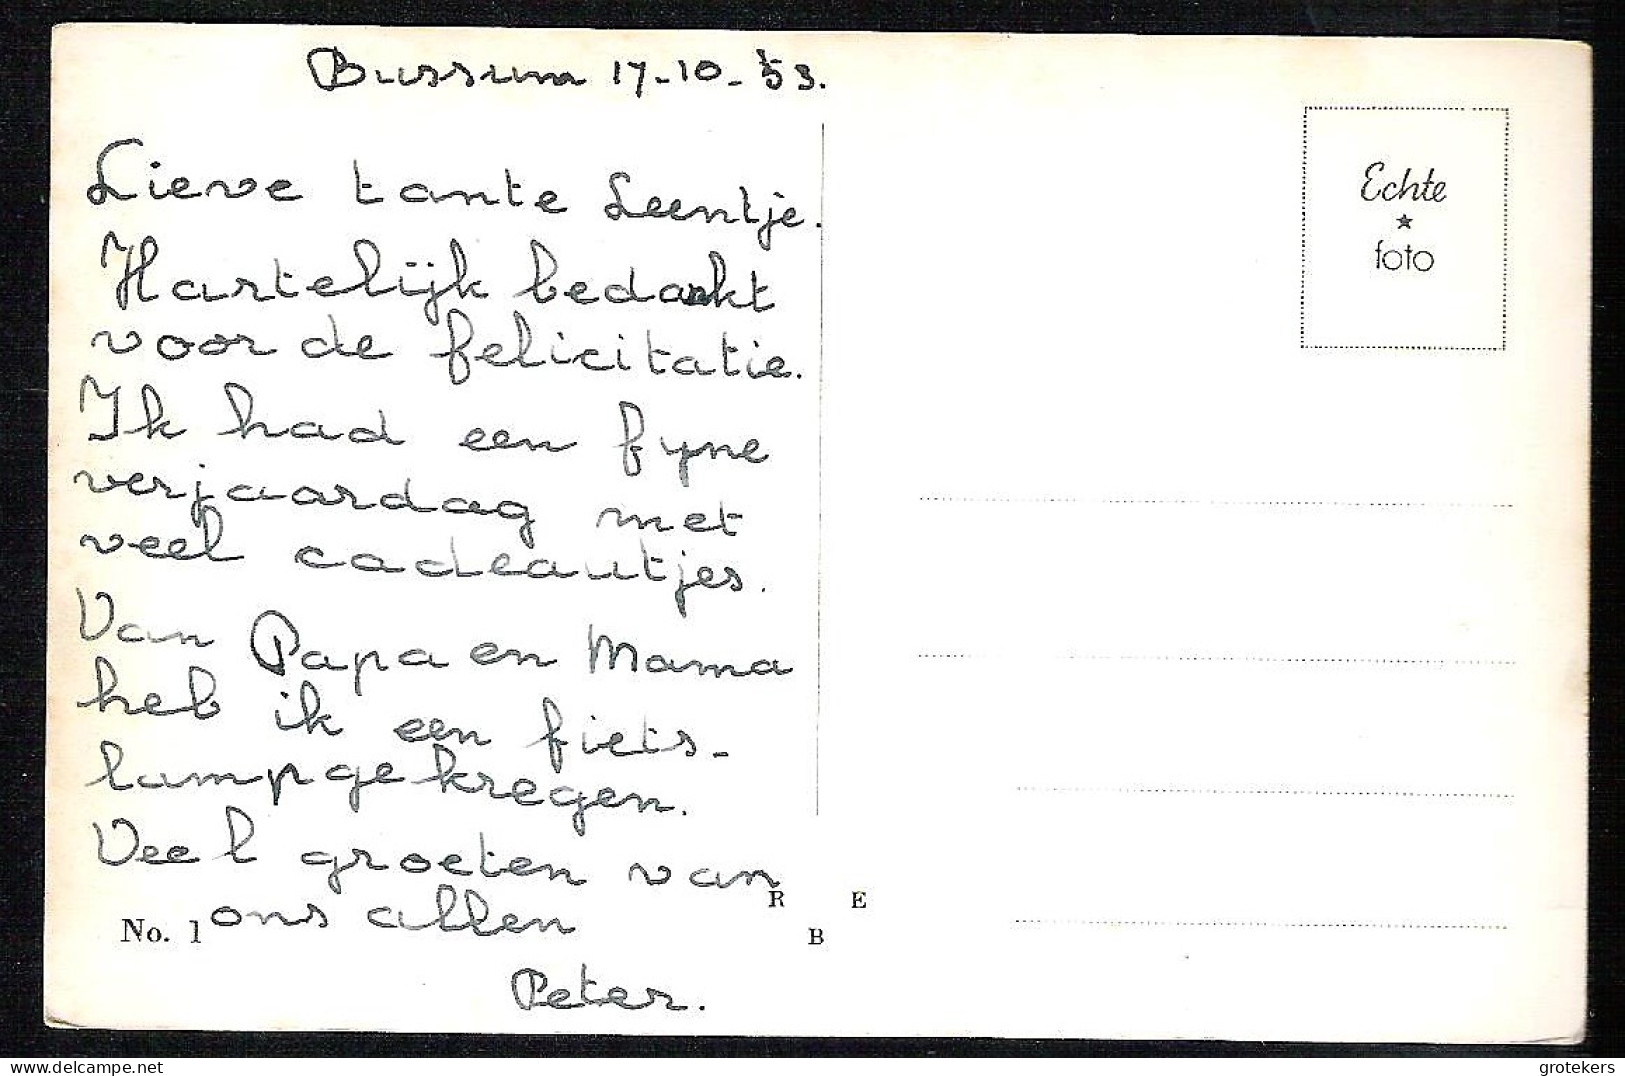 Bussum 17-10-'53.
Lieve tante Leentje.
Hartelijk bedankt
voor de felicitatie.
Ik had een fyne
verjaardag met
veel cadeautjes.
Van Papa en Mama
heb ik een fiets-
lamp gekregen.
Veel groeten van
ons allen
Peter.
No. 1
R E
B
Echte
foto
www.delcampe.net
grotekers